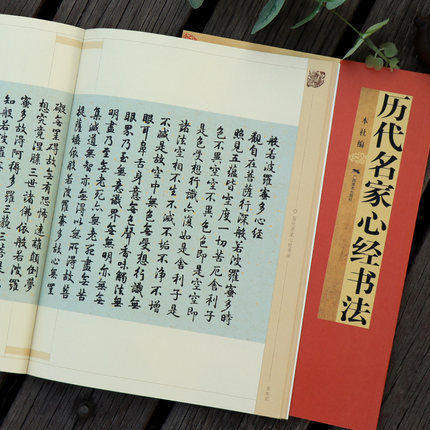 历代名家心经书法
本社编
般若波羅蜜多心經
觀自在菩薩行深般若波羅蜜多時
照見五蘊皆空度一切苦厄舍利子
色不異空空不異色色即是空空即
是色受想行識亦復如是舍利子是
諸法空相不生不滅不垢不淨不增
不減是故空中無色無受想行識無
眼耳鼻舌身意無色聲香味觸法無
眼界乃至無意識界無無明亦無無
明盡乃至無老死亦無老死盡無苦
集滅道無智亦無得以無所得故菩
提薩埵依般若波羅蜜多故心無罣
礙無罣礙故無有恐怖遠離顛倒夢
想究竟涅槃三世諸佛依般若波羅
蜜多故得阿耨多羅三藐三菩提
知般若波羅蜜多